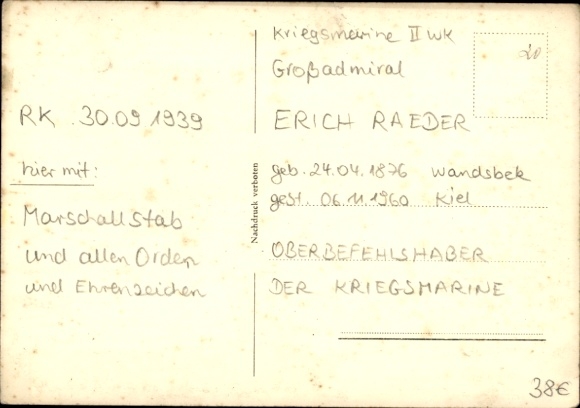 RK 30.09 1939
hier mit:
Marschallstab
und allen Orden
und Ehrenzeichen
Nachdruck verboten
Kriegsmarine II WK
Großadmiral
ERICH RAEDER
geb. 24.04.1876 Wandsbek
gest. 06.11.1960 Kiel
OBERBEFEHLSHABER
DER KRIEGSMARINE
38€